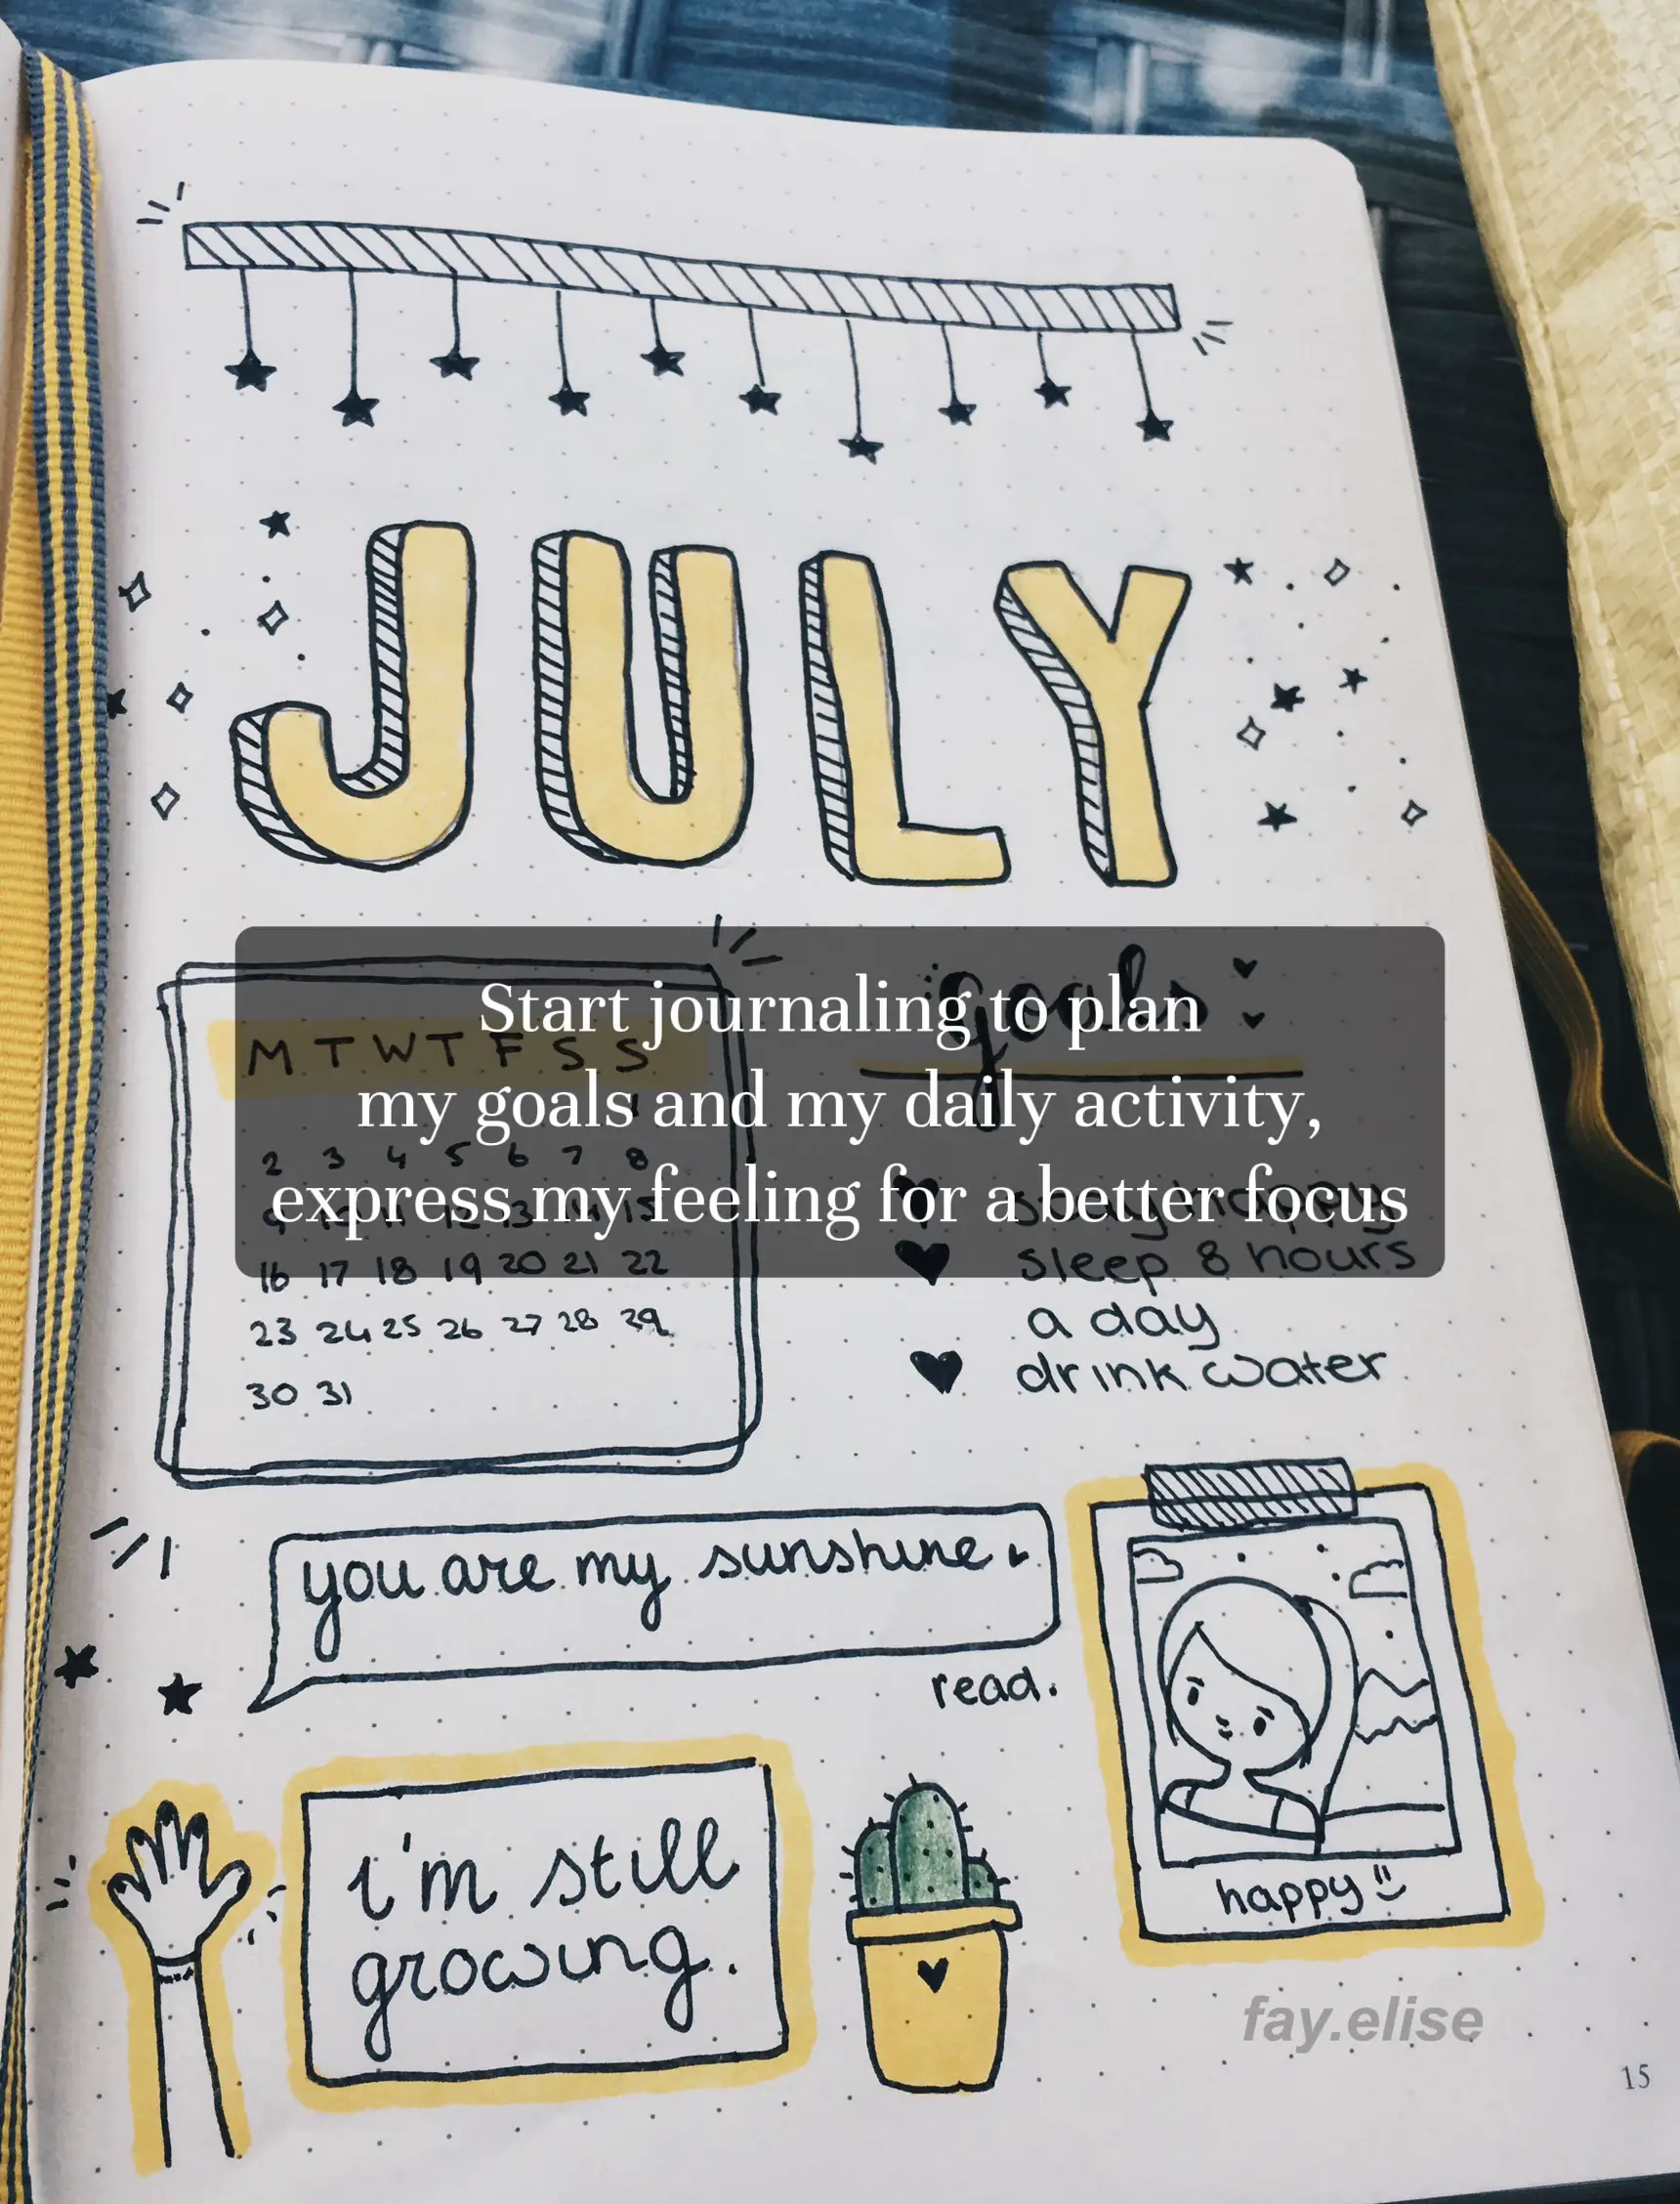 JULY
goals
M T W T F S S
1
2 3 4 5 6 7 8
9 10 11 12 13 14 15
16 17 18 19 20 21 22
23 24 25 26 27 28 29
30 31
Start journaling to plan
my goals and my daily activity,
express my feeling for a better focus
stay happy
sleep 8 hours
a day
drink water
you are my sunshine
read.
i'm still
growing.
happy
fay.elise
15